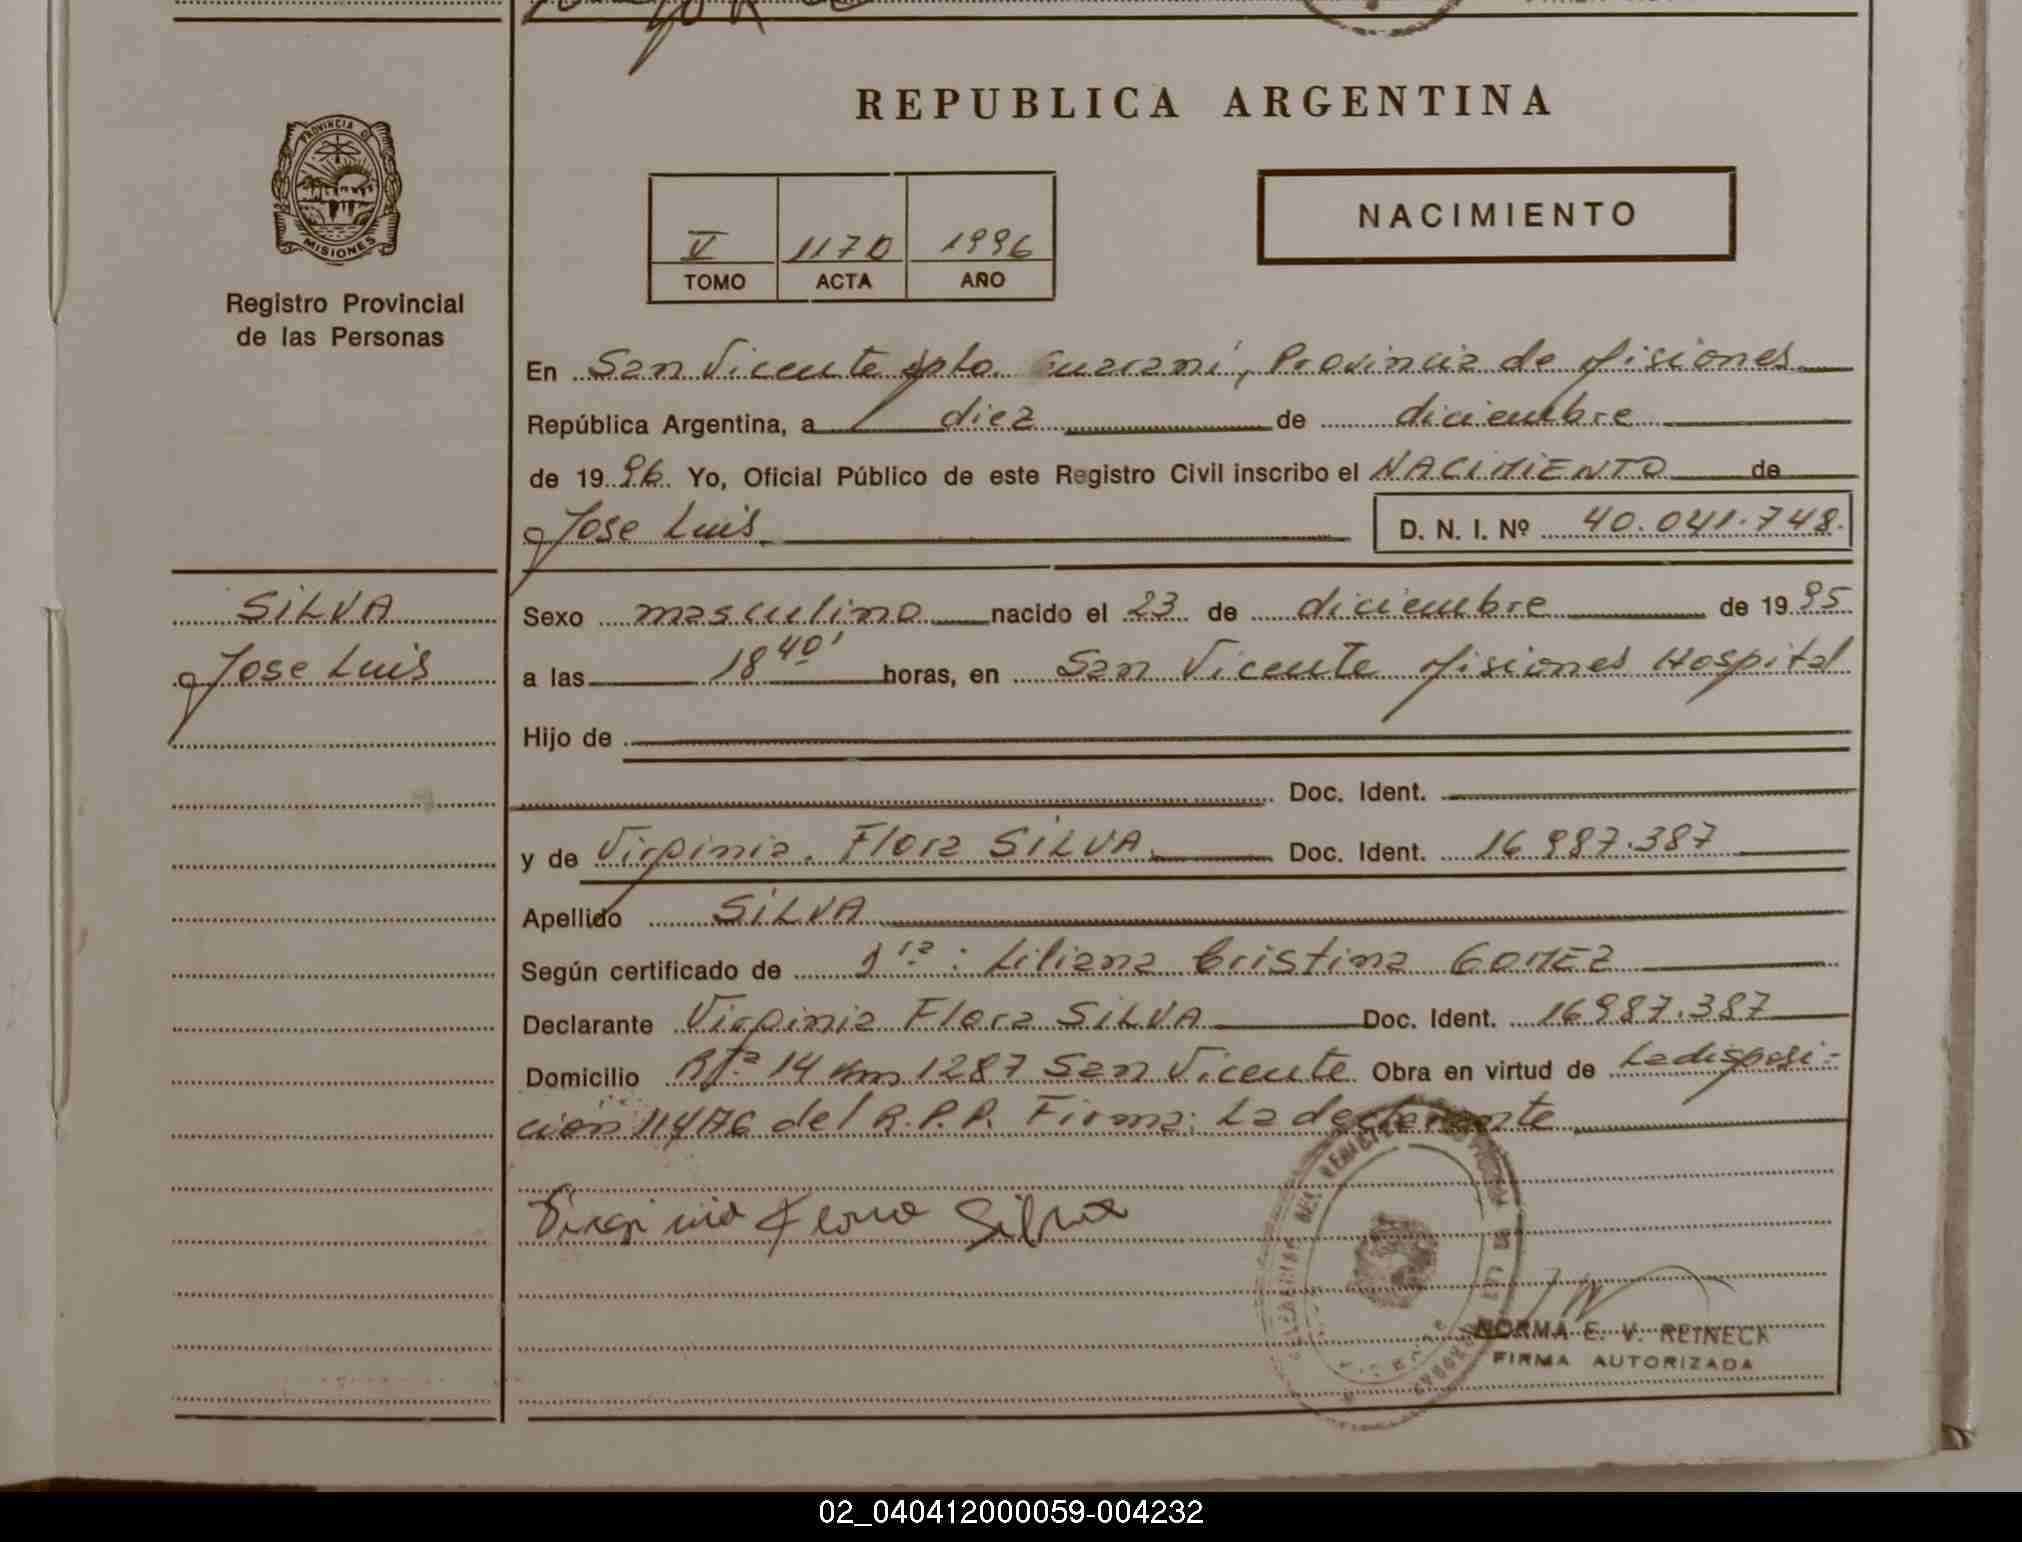 REPUBLICA ARGENTINA
PROVINCIA DE MISIONES
Registro Provincial
de las Personas
V 1170 1996
TOMO ACTA AÑO
NACIMIENTO
En San Vicente Dpto. Guaraní, Provincia de Misiones
República Argentina, a diez de diciembre
de 1996. Yo, Oficial Público de este Registro Civil inscribo el NACIMIENTO de
Jose Luis D. N. I. Nº 40.041.748.
SILVA
Jose Luis
Sexo masculino nacido el 23 de diciembre de 1995
a las 18 40' horas, en San Vicente Misiones Hospital
Hijo de
Doc. Ident.
y de Virginia Flora SILVA Doc. Ident. 16.987.387
Apellido SILVA
Según certificado de Liliana Cristina GOMEZ
Declarante Virginia Flora SILVA Doc. Ident. 16987.387
Domicilio Rta 14 Km 1287 San Vicente Obra en virtud de La disposi-
ción del R.P.P. Firma: La declarante
Virginia Flora Silva
NORMA E. V. REINECK
FIRMA AUTORIZADA
02_040412000059-004232